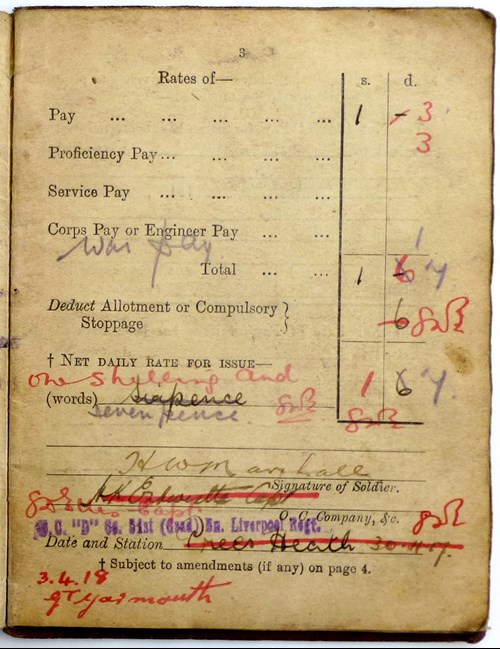 3
Rates of— s. d.
Pay ... ... ... ... ... 1 - 3
Proficiency Pay ... ... ... ... 3
Service Pay ... ... ... ...
Corps Pay or Engineer Pay ... ... 1
War pay
Total ... ... 1 6 7
Deduct Allotment or Compulsory } 6
Stoppage
† NET DAILY RATE FOR ISSUE—
One Shilling and 1 6 7.
(words) sixpence
sevenpence.
H W Marshall
Capt Signature of Soldier.
Capt O. C. Company, &c.
O.C. "D" Co. 51st (Grad.) Bn. Liverpool Regt.
Date and Station Prees Heath 30.11.17.
† Subject to amendments (if any) on page 4.
3.4.18
Gt Yarmouth